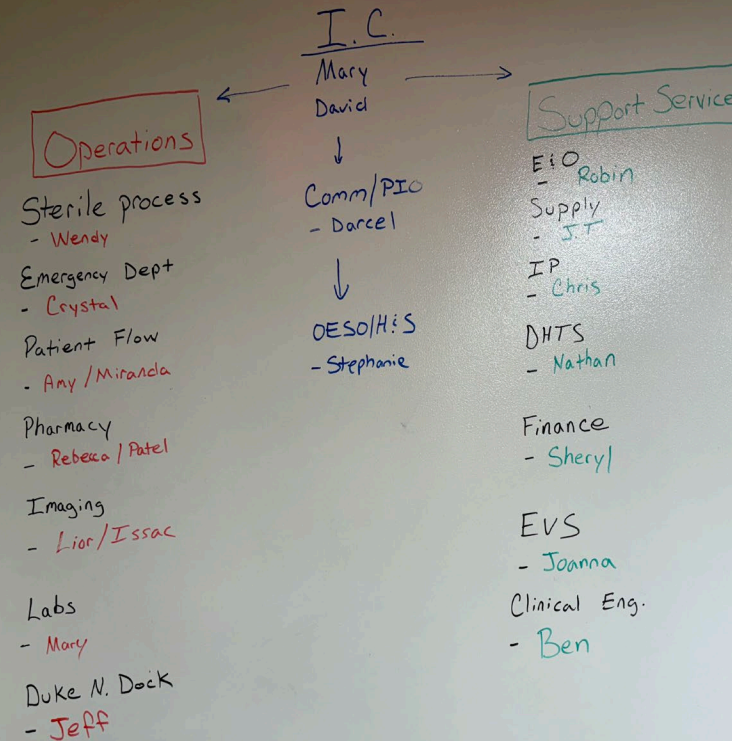 I.C.
Mary
David
Comm/PIO
- Darcel
OESO/H&S
- Stephanie
Operations
Sterile process
- Wendy
Emergency Dept
- Crystal
Patient Flow
- Amy/Miranda
Pharmacy
- Rebecca/Patel
Imaging
- Lior/Issac
Labs
- Mary
Duke N. Dock
- Jeff
Support Service
E&O
- Robin
Supply
- J.T
IP
- Chris
DHTS
- Nathan
Finance
- Sheryl
EVS
- Joanna
Clinical Eng.
- Ben